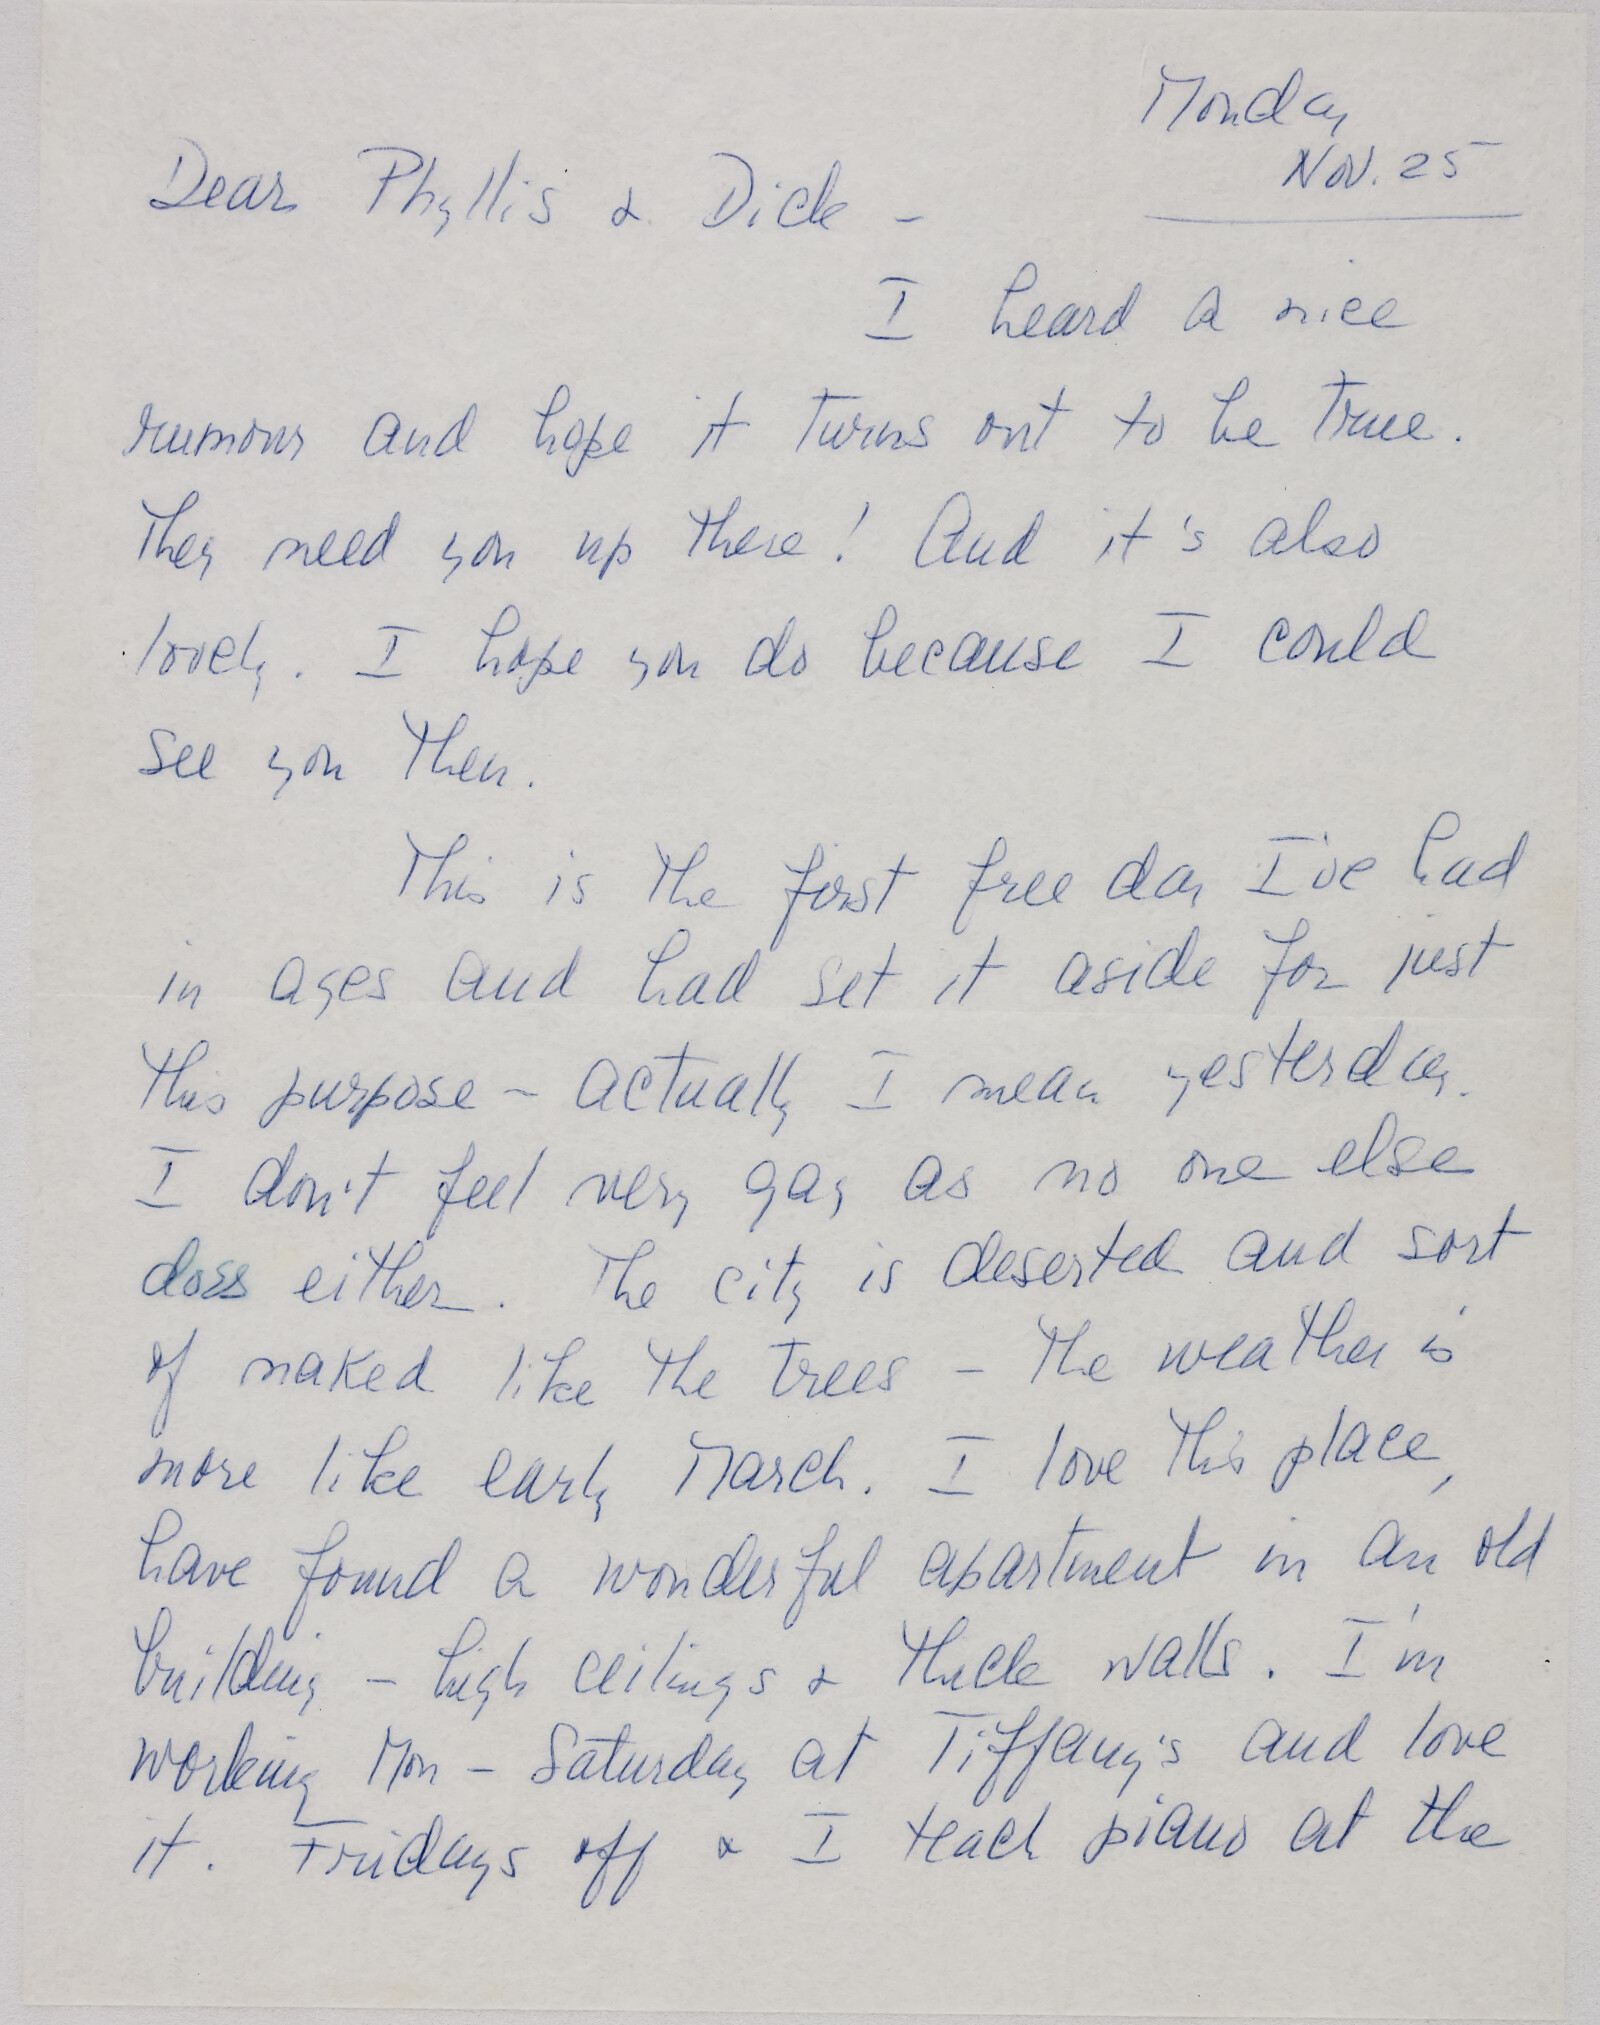 Monday
Nov. 25
Dear Phyllis & Dick -
I heard a nice
rumour and hope it turns out to be true.
They need you up there! And it's also
lovely. I hope you do because I could
see you then.
This is the first free day I've had
in ages and had set it aside for just
this purpose - actually I mean yesterday.
I don't feel very gay as no one else
does either. The city is deserted and sort
of naked like the trees - the weather is
more like early March. I love this place,
have found a wonderful apartment in an old
building - high ceilings & thick walls. I'm
working Mon - Saturday at Tiffany's and love
it. Fridays off & I teach piano at the